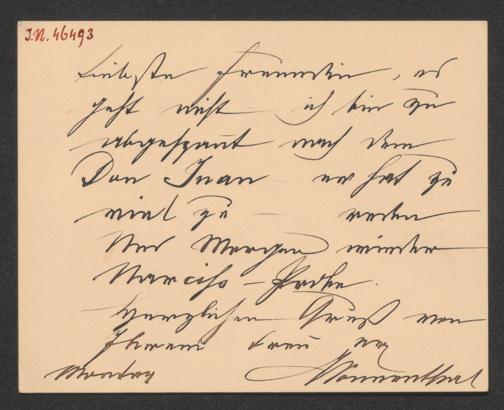 I.N. 46493
Liebste Freundin, es
geht nicht ich bin zu
abgespannt nach dem
Don Juan er hat zu
viel zu — reden
Und Morgen wieder
Narciss-Probe.
Herzlichen Gruß von
Ihrem treu
Montag Sonnenthal